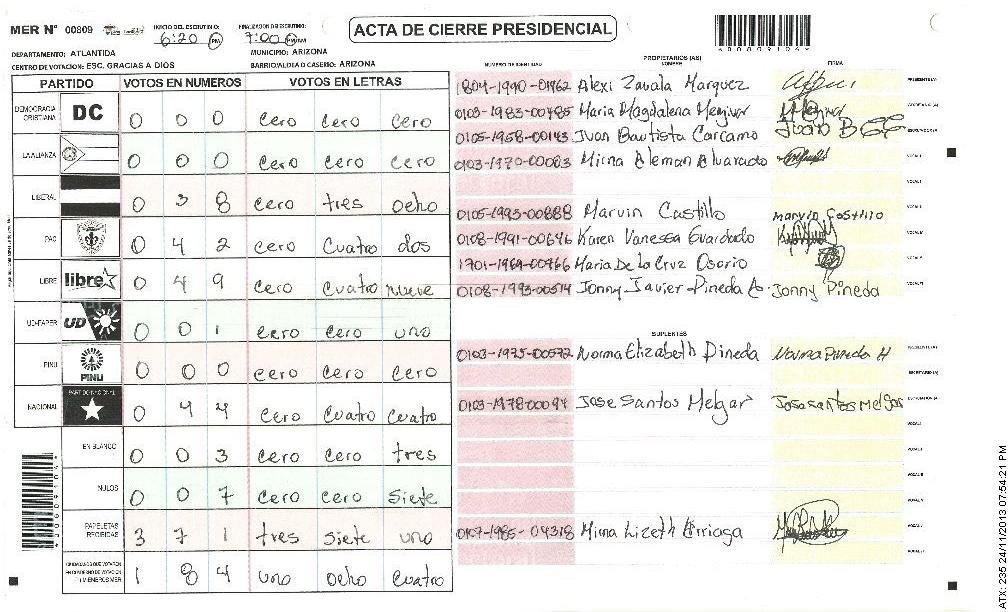 MER N° 00809
INICIO DEL ESCRUTINIO: 6:20 PM
FINALIZACION DE ESCRUTINIO: 7:00 PM
ACTA DE CIERRE PRESIDENCIAL
DEPARTAMENTO: ATLANTIDA
MUNICIPIO: ARIZONA
CENTRO DE VOTACION: ESC. GRACIAS A DIOS
BARRIO/ALDEA O CASERIO: ARIZONA
PARTIDO VOTOS EN NUMEROS VOTOS EN LETRAS
DEMOCRACIA CRISTIANA DC 0 0 0 cero cero cero
LA ALIANZA 0 0 0 cero cero cero
LIBERAL 0 3 8 cero tres ocho
PAC 0 4 2 cero cuatro dos
LIBRE libre 0 4 9 cero cuatro nueve
UD-FAPER UD 0 0 1 cero cero uno
PINU PINU 0 0 0 cero cero cero
NACIONAL PARTIDO NACIONAL 0 4 4 cero cuatro cuatro
EN BLANCO 0 0 3 cero cero tres
NULOS 0 0 7 cero cero siete
PAPELETAS RECIBIDAS 3 7 1 tres siete uno
CIUDADANOS QUE VOTARON EN CUADERNO DE VOTACION (+) MIEMBROS MER 1 8 4 uno ocho cuatro
PROPIETARIOS (AS)
NUMERO DE IDENTIDAD NOMBRE FIRMA
1804-1990-01962 Alexi Zavala Marquez PRESIDENTE (A)
0103-1983-00485 Maria Magdalena Menjivar SECRETARIO (A)
0105-1968-00143 Juan Bautista Carcamo ESCRUTADOR (A)
0103-1970-00063 Mirna Aleman Alvarado VOCAL I
0105-1993-00888 Marvin Castillo Marvin Castillo
0108-1991-00646 Karen Vanessa Guardado
1701-1969-00466 Maria De La Cruz Osorio
0108-1993-00514 Jonny Javier Pineda Jonny Pineda
SUPLENTES
0103-1975-00572 Norma Elizabeth Pineda Norma Pineda H PRESIDENTE (A)
SECRETARIO (A)
0103-1978-00094 Jose Santos Melgar Jose santos Melgar ESCRUTADOR (A)
0107-1985-04318 Mirna Lizeth Arriaga
ATX: 235 24/11/2013 07:54:21 PM